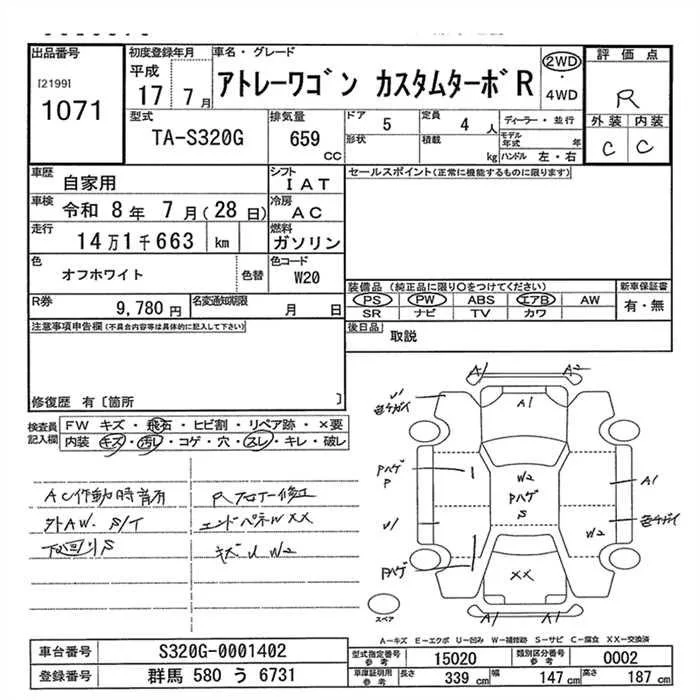 出品番号
[2199]
1071
初度登録年月
平成
17 7月
車名・グレード
アトレーワゴン カスタムターボR
2WD
・
4WD
評価点
R
外装 内装
C C
型式
TA-S320G
排気量
659
CC
ドア
5
定員
4 人
形状
積載
kg
ディーラー・並行
モデル年式 年
ハンドル 左・右
車歴
自家用
シフト
IAT
車検
令和 8年 7月(28日)
冷房
AC
走行
14万1千663 km
燃料
ガソリン
色
オフホワイト
色替
色コード
W20
R券
9,780円
名変通知期限
月 日
セールスポイント(正常に機能するものに限ります)
装備品(純正品に限り○をつけてください)
PS PW ABS エアB AW
SR ナビ TV カワ
新車保証書
有・無
後日品
取説
注意事項申告欄(不具合内容等は具体的に記入して下さい)
修復歴 有〔箇所 〕
検査員記入欄
FW キズ・飛石・ヒビ割・リペア跡・×要
内装 キズ・汚レ・コゲ・穴・スレ・キレ・破レ
AC作動時音有
外AW. S/T
下廻りS
Rフロアー修正
エンドパネルW XX
キズU W2
A1 A2
A1
U1
色チガイ
Pハゲ
P
1
W2
Pハゲ
S
A1
色チガイ
U1
W2
Pハゲ
XX
A1 A1
スペア
A-キズ E-エクボ U-凹み W-補修跡 S-サビ C-腐食 XX-交換済
車台番号
S320G-0001402
登録番号
群馬 580 う 6731
型式指定番号
参考
15020
類別区分番号
参考
0002
車庫証明用
参考
長さ 339 cm
幅 147 cm
高さ 187 cm